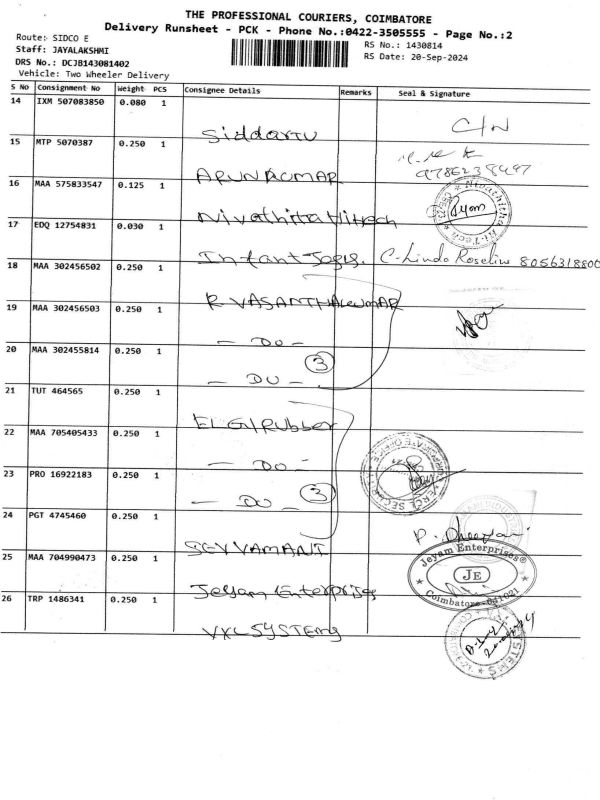 THE PROFESSIONAL COURIERS, COIMBATORE
Delivery Runsheet - PCK - Phone No.:0422-3505555 - Page No.:2
Route: SIDCO E
RS No.: 1430814
Staff: JAYALAKSHMI
RS Date: 20-Sep-2024
DRS No.: DCJB143081402
Vehicle: Two Wheeler Delivery
S No Consignment No Weight PCS Consignee Details Remarks Seal & Signature
14 IXM 507083850 0.080 1
Siddartu C/N
15 MTP 5070387 0.250 1
ARUNKUMAR
16 MAA 575833547 0.125 1
Nivathitha Hitech
17 EDQ 12754831 0.030 1
Infant Jegis. C-Lindo Roseline 8056318800
18 MAA 302456502 0.250 1
R VASANTHAKUMAR
19 MAA 302456503 0.250 1
- DO -
20 MAA 302455814 0.250 1
- DO - 3
21 TUT 464565 0.250 1
ELGI Rubber
22 MAA 705405433 0.250 1
- DO -
23 PRO 16922183 0.250 1
- DO - 3
24 PGT 4745460 0.250 1
SEVVAMANI
25 MAA 704990473 0.250 1
Jeyam Enterprises
Jeyam Enterprises®
JE
Coimbatore-641021
26 TRP 1486341 0.250 1
VKL SYSTEMS